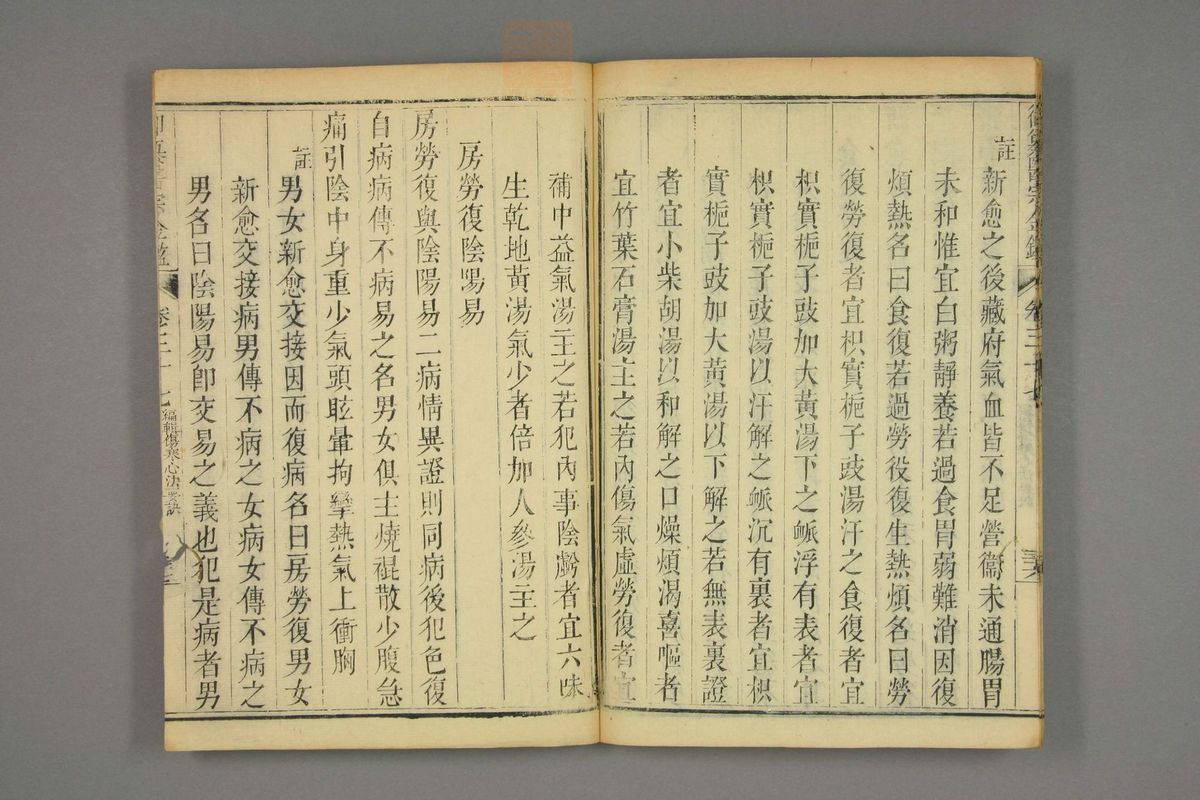 御纂醫宗金鑑 卷三十七
註新愈之後藏府氣血皆不足營衞未通腸胃
未和惟宜白粥靜養若過食胃弱難消因復
煩熱名曰食復若過勞役復生熱煩名曰勞
復勞復者宜枳實梔子豉湯汗之食復者宜
枳實梔子豉加大黃湯下之䘑浮有表者宜
枳實梔子豉湯以汗解之䘑沉有裏者宜枳
實梔子豉加大黃湯以下解之若無表裏證
者宜小柴胡湯以和解之口燥煩渴喜嘔者
宜竹葉石膏湯主之若內傷氣虛勞復者宜
補中益氣湯主之若犯內事陰虧者宜六味
生乾地黃湯氣少者倍加人參湯主之
房勞復陰陽易
房勞復與陰陽易二病情異證則同病後犯色復
自病病傳不病易之名男女俱主燒裩散少腹急
痛引陰中身重少氣頭眩暈拘攣熱氣上衝胸
註男女新愈交接因而復病名曰房勞復男女
新愈交接病男傳不病之女病女傳不病之
男名曰陰陽易卽交易之義也犯是病者男
卷三十七 編輯傷寒心法要訣